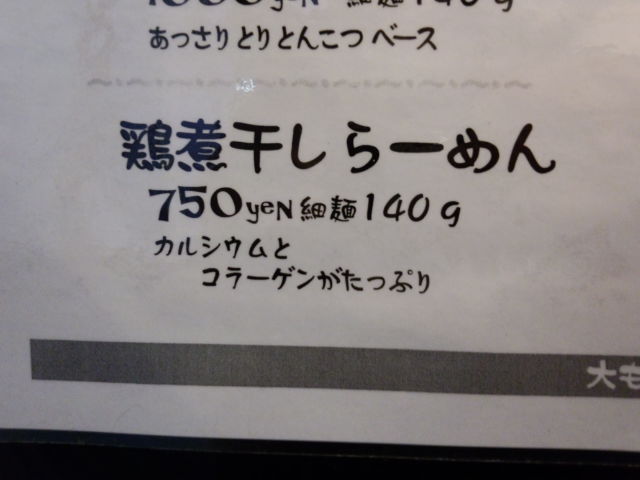 細麺140g
あっさりとりとんこつベース
鶏煮干しらーめん
750yeN細麺140g
カルシウムと
コラーゲンがたっぷり
大も